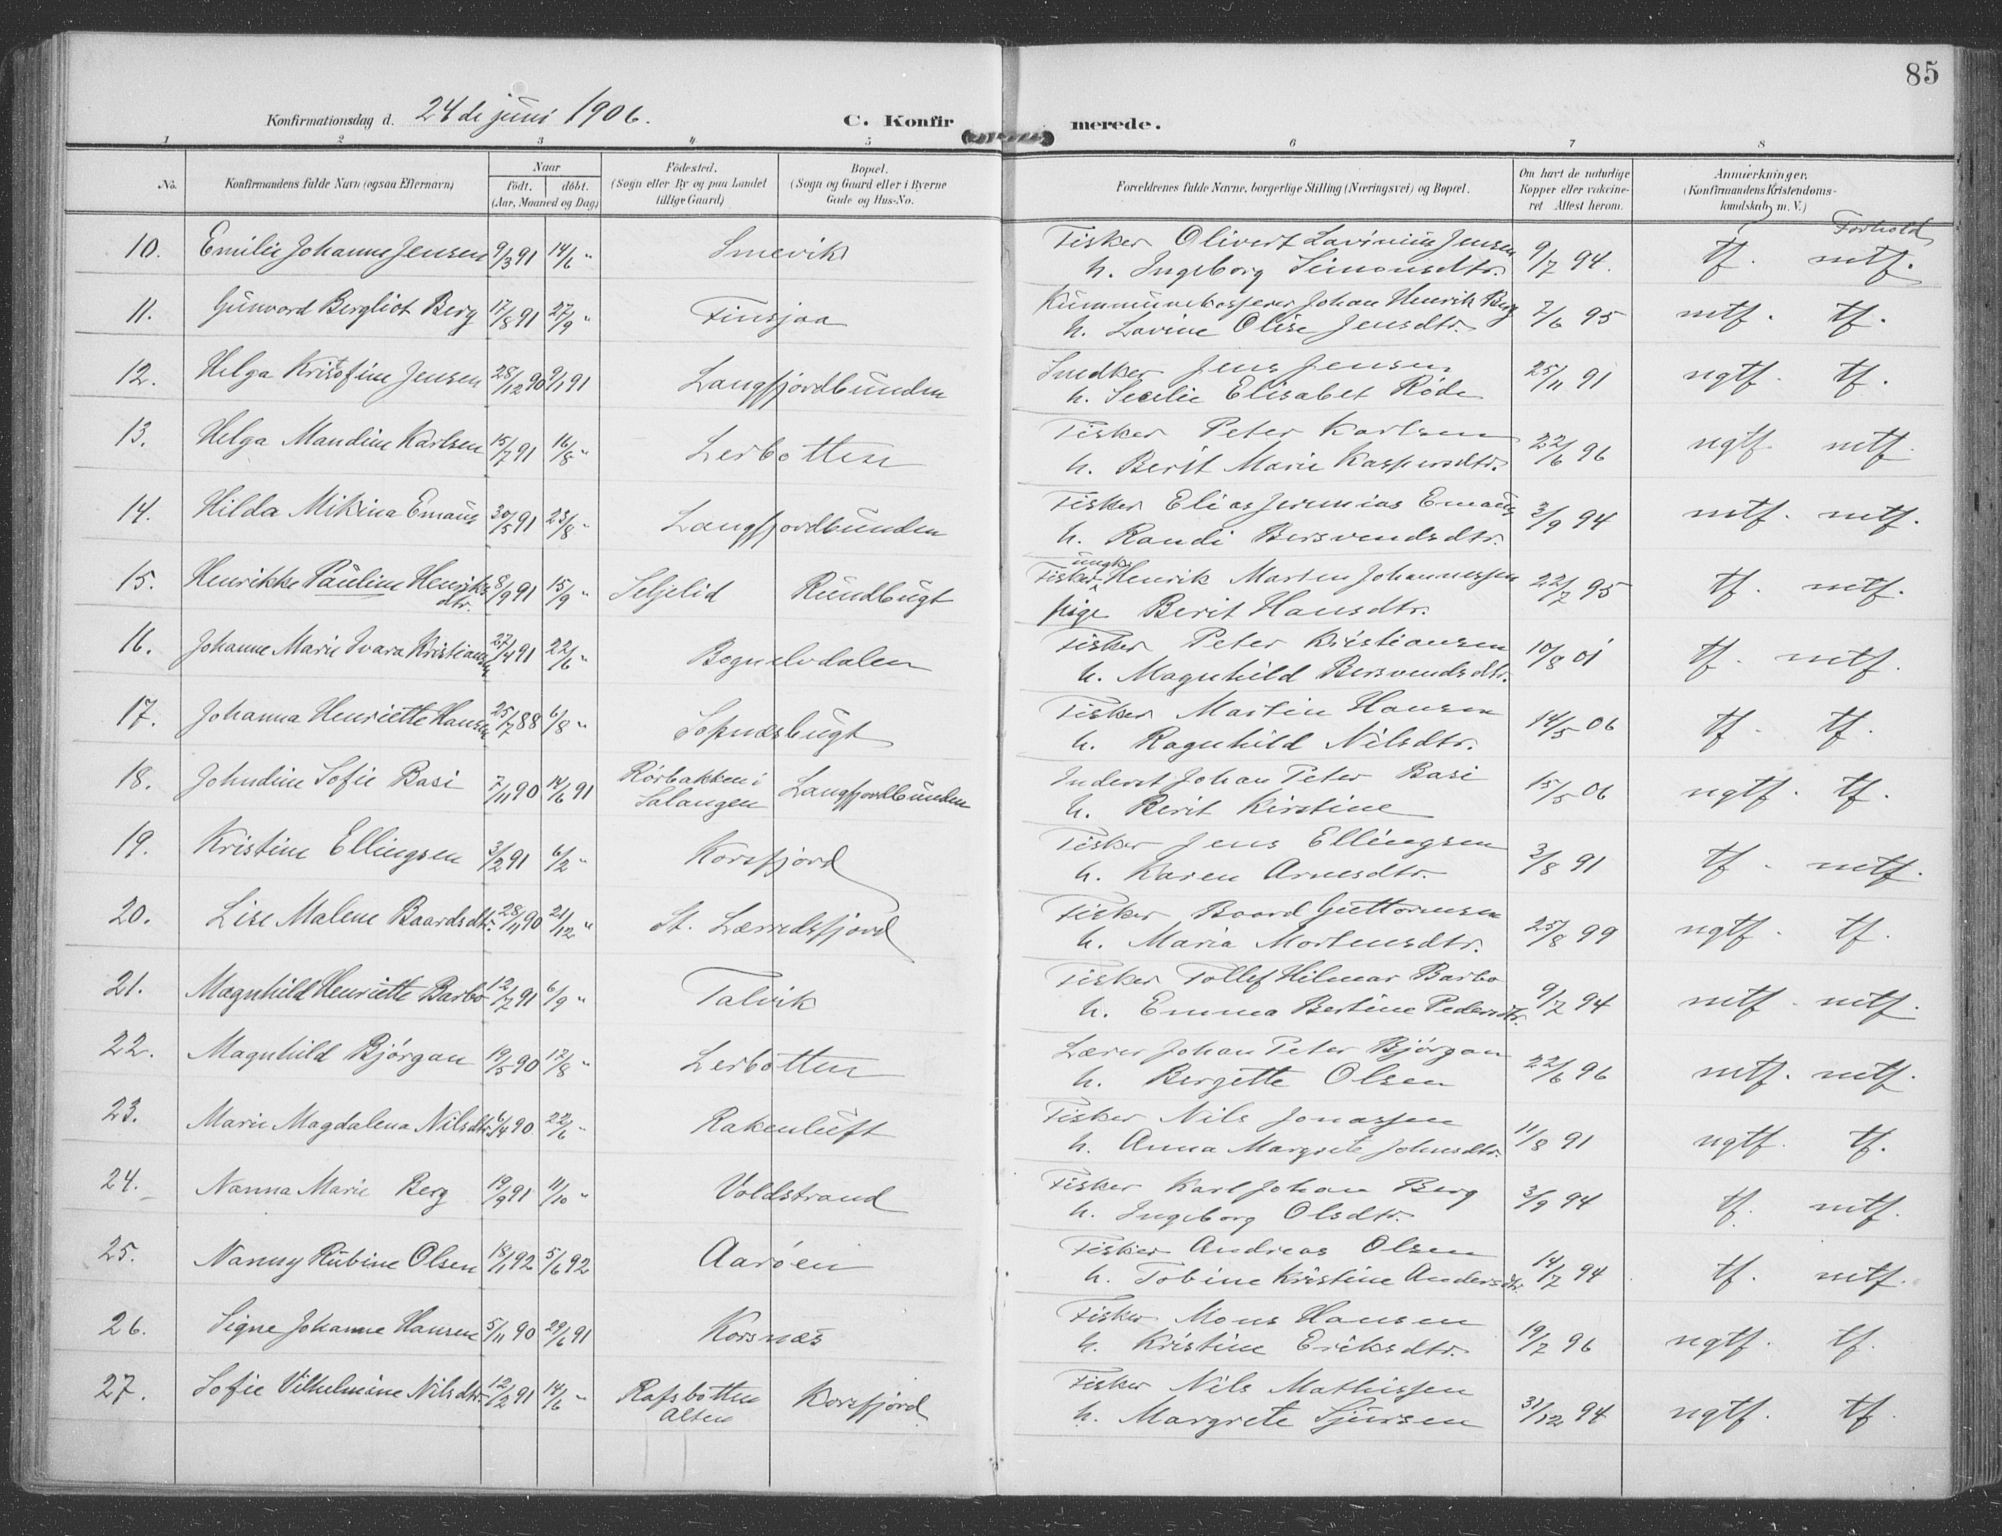 85
Konfirmationsdag d. 24de juni 1906.
C. Konfirmerede.
1 2 3 4 5 6 7 8
No. Konfirmandens fulde Navn (ogsaa Efternavn) Naar født. døbt. (Aar, Maaned og Dag) Fødested. (Sogn eller By og paa Landet tillige Gaard) Bopæl. (Sogn og Gaard eller i Byerne Gade og Hus-No. Forældrenes fulde Navne, borgerlige Stilling (Næringsvei) og Bopæl. Om havt de naturlige Kopper eller vakcineret Attest herom. Anmærkninger. (Konfirmandens Kristendomskundskab m. V.) Forhold
10. Emilie Johanne Jensen 9/3 91 14/6 " Smevik Fisker Olivert Lavinius Jensen 9/7 94. tf. mtf.
h. Ingeborg Simonsdtr.
11. Gunvord Bergliot Berg 17/8 91 27/9 " Finsjaa Kummunekasserer Johan Henrik Berg 7/6 95 mtf. tf.
h. Lovine Olise Jensdtr.
12. Helga Kristofine Jensen 28/12 90 9/1 91 Langfjordbunden Snedker Jens Jensen 25/11 91 ngtf. tf.
h. Secilie Elisabet Røde
13. Helga Mandine Karlsen 15/7 91 16/8 " Lerbotten Fisker Peter Karlsen 22/6 96 ngtf. mtf.
h. Berit Marie Kaspersdtr.
14. Hilda Mikina Emaus 30/5 91 23/8 " Langfjordbunden Fisker Elias Jeremias Emaus 3/9 94 mtf. mtf.
h. Randi Bersvendsdtr.
15. Henrikke Pauline Henriksdtr. 8/9 91 15/9 " Seljelid Rundbugt Fisker ungk. Henrik Marten Johannessen 22/7 95 tf. mtf.
pige Berit Hansdtr.
16. Johanne Marie Ivara Kristiansen 27/4 91 22/6 " Bognelvdalen Fisker Peter Kristiansen 10/8 01 tf. mtf.
h. Magnhild Bersvendsdtr.
17. Johanna Henriette Hansen 25/7 88 6/8 " Sopnæsbugt Fisker Martin Hansen 14/5 06 tf. tf.
h. Ragnhild Nilsdtr.
18. Johndine Sofie Basi 7/11 90 14/6 91 Rørbakken i Salangen Langfjordbunden Inderst Johan Peter Basi 15/5 06 ngtf. tf.
h. Berit Kirstine
19. Kristine Ellingsen 3/2 91 6/2 " Korsfjord Fisker Jens Ellingsen 3/8 91 tf. mtf.
h. Karen Arnesdtr.
20. Lise Malene Baardsdtr. 28/11 90 21/12 " St. Lærredsfjord Fisker Baard Guttormsen 25/8 99 ngtf. tf.
h. Maria Mortensdtr.
21. Magnhild Henriette Barbo 12/7 91 6/9 " Talvik Fisker Tollef Hilmar Barbo 9/7 94 mtf. mtf.
h. Emma Bertine Pedersdtr.
22. Magnhild Bjørgan 19/5 90 12/8 " Lerbotten Lærer Johan Peter Bjørgan 22/6 96 mtf. mtf.
h. Bergette Olsen
23. Marie Magdalena Nilsdtr. 6/4 90 22/6 " Rakenluft Fisker Nils Jonassen 11/8 91 ngtf. tf.
h. Anna Margrete Johnsdtr.
24. Nanna Marie Berg 19/9 91 11/10 " Voldstrand Fisker Karl Johan Berg 3/9 94 tf. mtf.
h. Ingeborg Olsdtr.
25. Nanny Rubine Olsen 18/1 92 5/6 92 Aarøen Fisker Andreas Olsen 14/7 94 tf. mtf.
h. Tobine Kristine Andersdtr.
26. Signe Johanne Hansen 5/11 90 29/6 91 Korsnæs Fisker Mons Hansen 19/7 96 ngtf. tf.
h. Kristine Eriksdtr.
27. Sofie Vilhelmine Nilsdtr. 12/2 91 14/6 " Rafsbotten Alten Korsfjord Fisker Nils Mathissen 31/12 94 ngtf. tf.
h. Margrete Sjursen